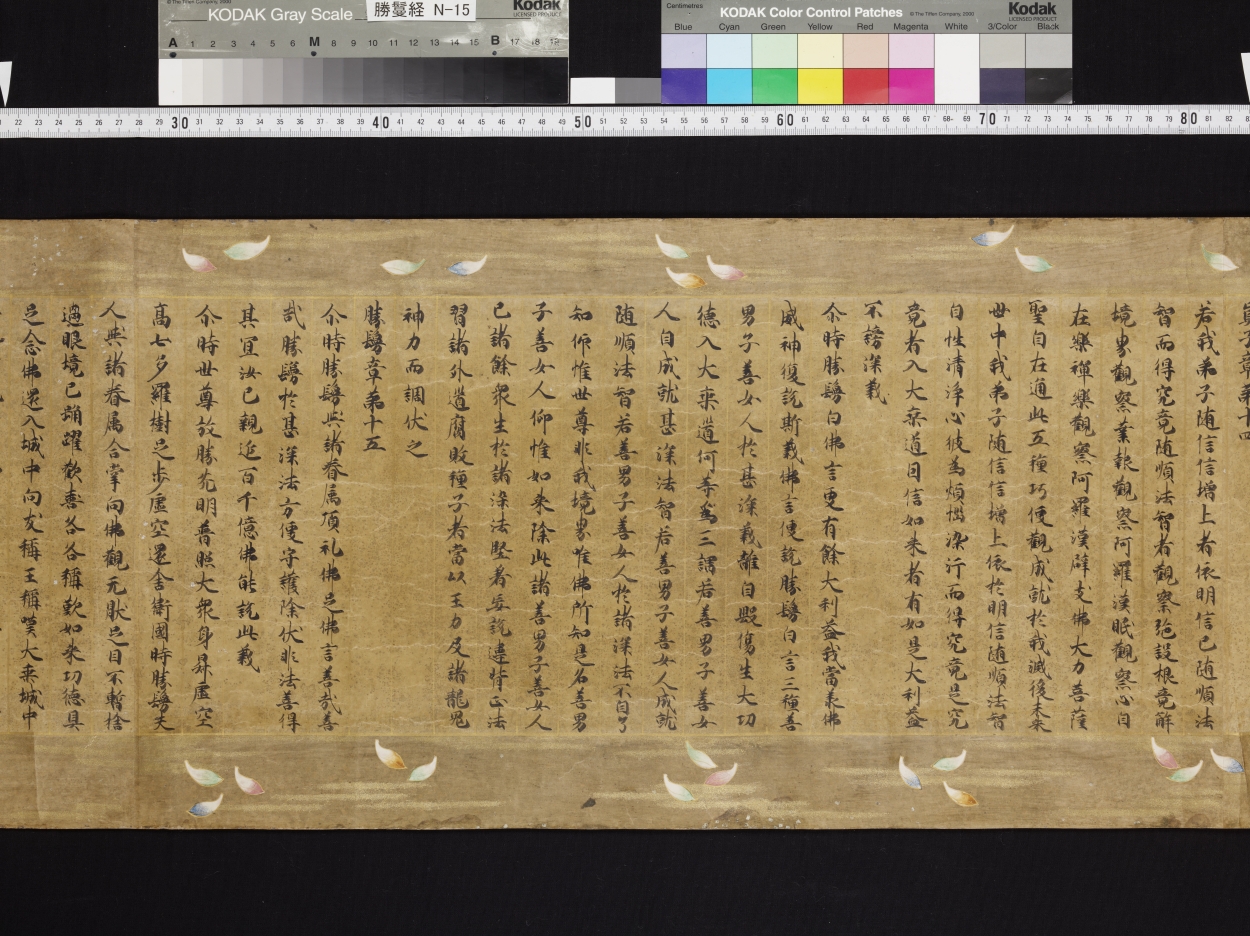 KODAK Gray Scale
勝鬘経 N-15
Kodak
LICENSED PRODUCT
A 1 2 3 4 5 6 M 8 9 10 11 12 13 14 15 B 17 18 19
Centimetres
KODAK Color Control Patches
© The Tiffen Company, 2000
Kodak
LICENSED PRODUCT
Blue Cyan Green Yellow Red Magenta White 3/Color Black
22 23 24 25 26 27 28 29 30 31 32 33 34 35 36 37 38 39 40 41 42 43 44 45 46 47 48 49 50 51 52 53 54 55 56 57 58 59 60 61 62 63 64 65 66 67 68 69 70 71 72 73 74 75 76 77 78 79 80 81 82
子章第十四
若我弟子随信信増上者依明信已随順法
智而得究竟随順法智者觀察施設根意解
境界觀察業報觀察阿羅漢眠觀察心自
在樂禪樂觀察阿羅漢辟支佛大力菩薩
聖自在通此五種巧便觀成就於我滅後未来
世中我弟子随信信增上依於明信随順法智
自性清淨心彼為煩惱染汙而得究竟是究
竟者入大乗道因信如来者有如是大利益
不謗深義
尒時勝鬘白佛言更有餘大利益我當承佛
威神復說斯義佛言便說勝鬘白言三種善
男子善女人於甚深義離自毀傷生大功
德入大乗道何等為三謂若善男子善女
人自成就甚深法智若善男子善女人成就
随順法智若善男子善女人於諸深法不自了
知仰惟世尊非我境界唯佛所知是名善男
子善女人仰惟如来除此諸善男子善女人
已諸餘衆生於諸深法堅着妄說違背正法
習諸外道腐敗種子者當以王力及諸龍鬼
神力而調伏之
勝鬘章第十五
尒時勝鬘與諸眷属頂礼佛足佛言善哉善
哉勝鬘於甚深法方便守護除伏非法善得
其冝汝已親近百千億佛能說此義
尒時世尊放勝光明普照大衆身昇虛空
高七多羅樹足歩虛空還舎衛國時勝鬘夫
人與諸眷属合掌向佛觀无猒足目不暫捨
過眼境已踊躍歡喜各各稱歎如来功德具
足念佛還入城中向友稱王稱嘆大乗城中